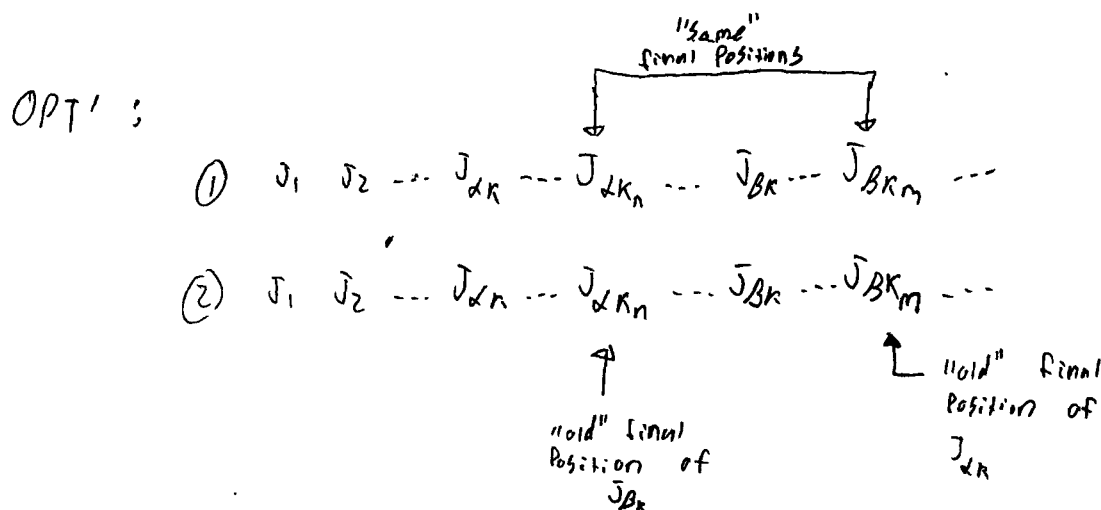 "Same"
final Positions
OPT' :
① J₁ J₂ --- J_αK ---- J_αKₙ ... J_βK ... J_βKₘ ---
② J₁ J₂ ... J_αK ... J_αKₙ ... J_βK ... J_βKₘ ...
"old" final
Position of
J_βK
"old" final
Position of
J_αK